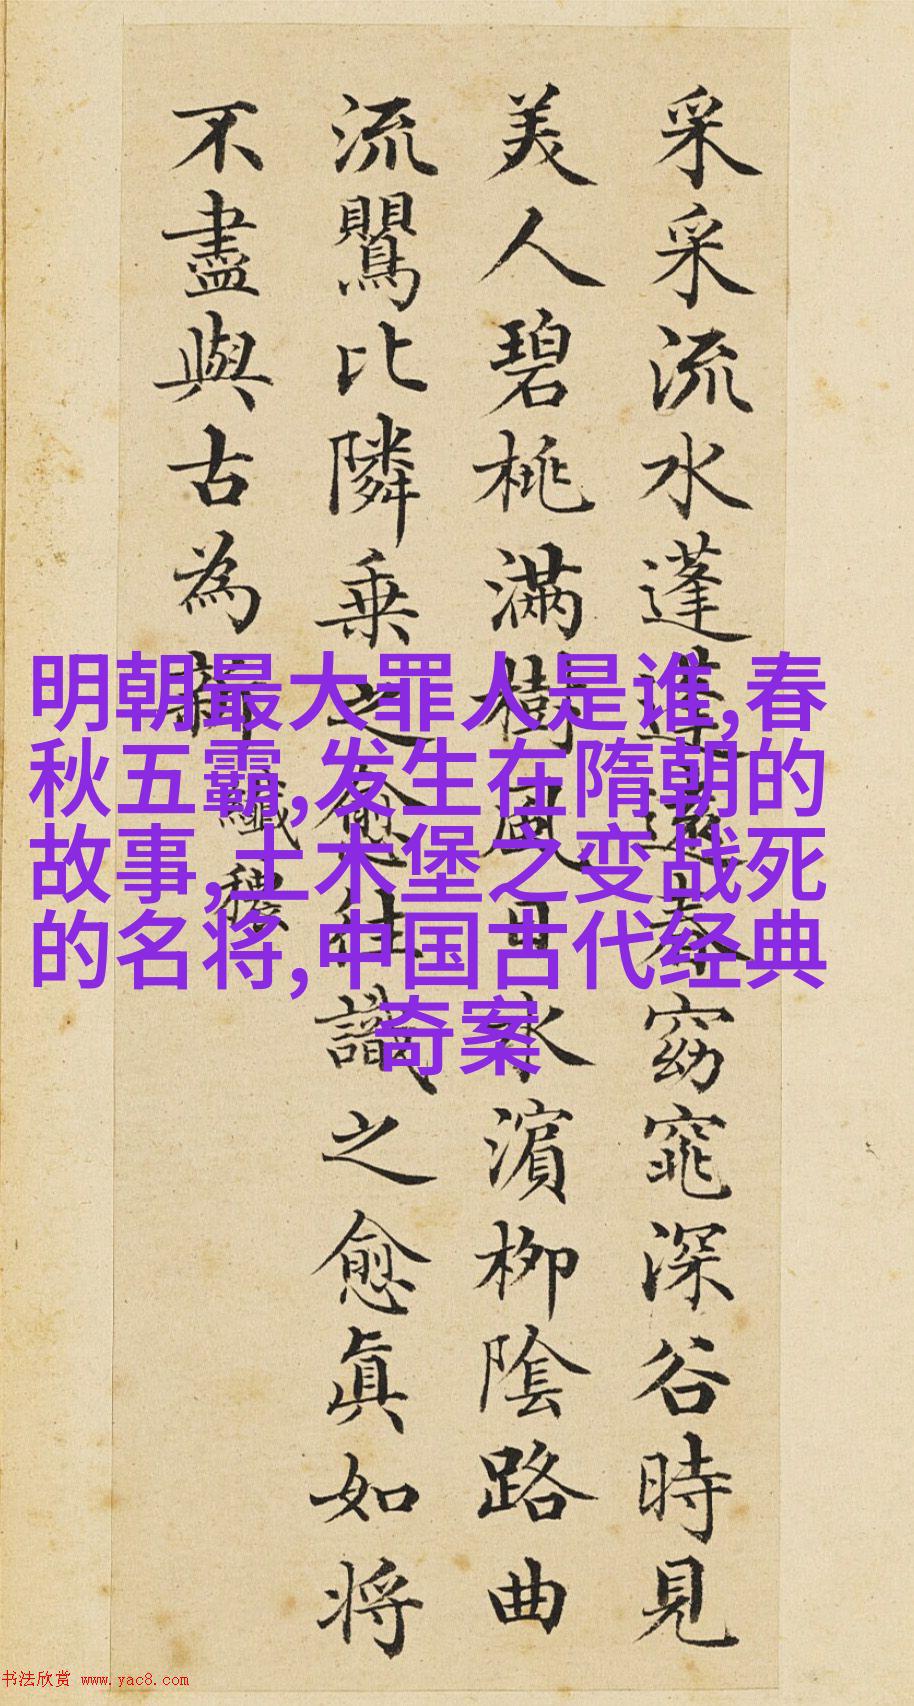 采采流水蓬蓬遠春窈窕深谷時見
美人碧桃滿樹風日水濱柳陰路曲
流鸎比隣乗之愈往識之愈眞如将
不盡與古為新
纖穠
明朝最大罪人是谁,春
秋五霸,发生在隋朝的
故事,土木堡之变战死
的名将,中国古代经典
奇案
书法欣赏 www.yac8.com